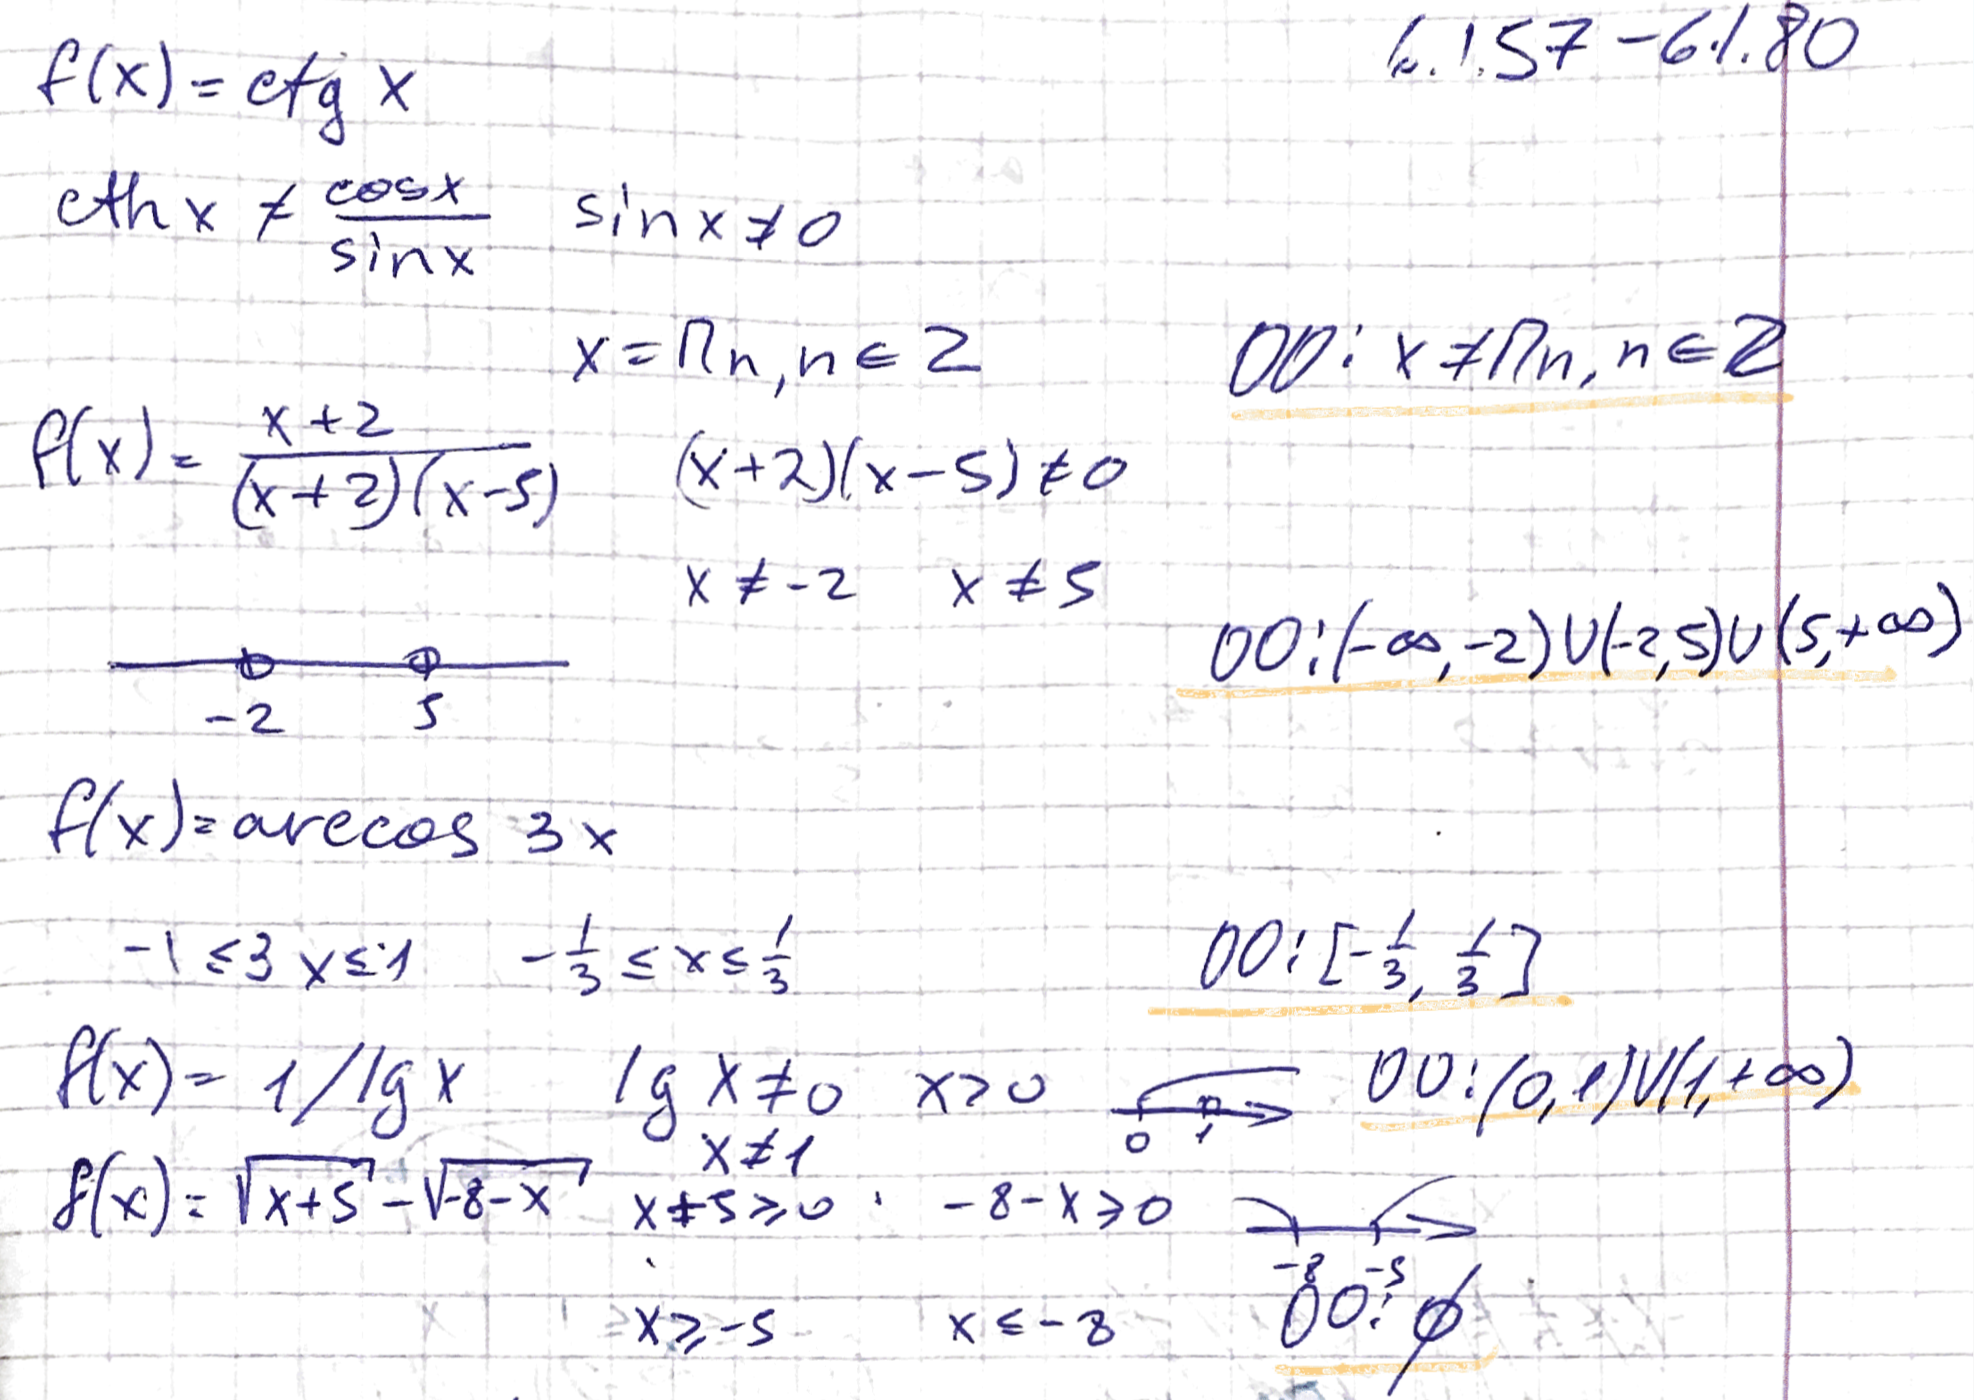 6.1.57 - 6.1.80
f(x) = ctg x
cth x ≠ cosx / sinx   sin x ≠ 0
x = Πn, n ∈ Z   OO: x ≠ Πn, n ∈ Z
f(x) = (x+2) / ((x+2)(x-5))   (x+2)(x-5) ≠ 0
x ≠ -2   x ≠ 5
OO: (-∞, -2) U (-2, 5) U (5, +∞)
-2   5
f(x) = arccos 3x
-1 ≤ 3x ≤ 1   -1/3 ≤ x ≤ 1/3   OO: [-1/3, 1/3]
f(x) = 1/lg x   lg x ≠ 0   x > 0   0   1   OO: (0, 1) U (1, +∞)
x ≠ 1
f(x) = √(x+5) - √(-8-x)   x+5 ≥ 0   -8-x ≥ 0
-8   -5
x ≥ -5   x ≤ -8   OO: ∅